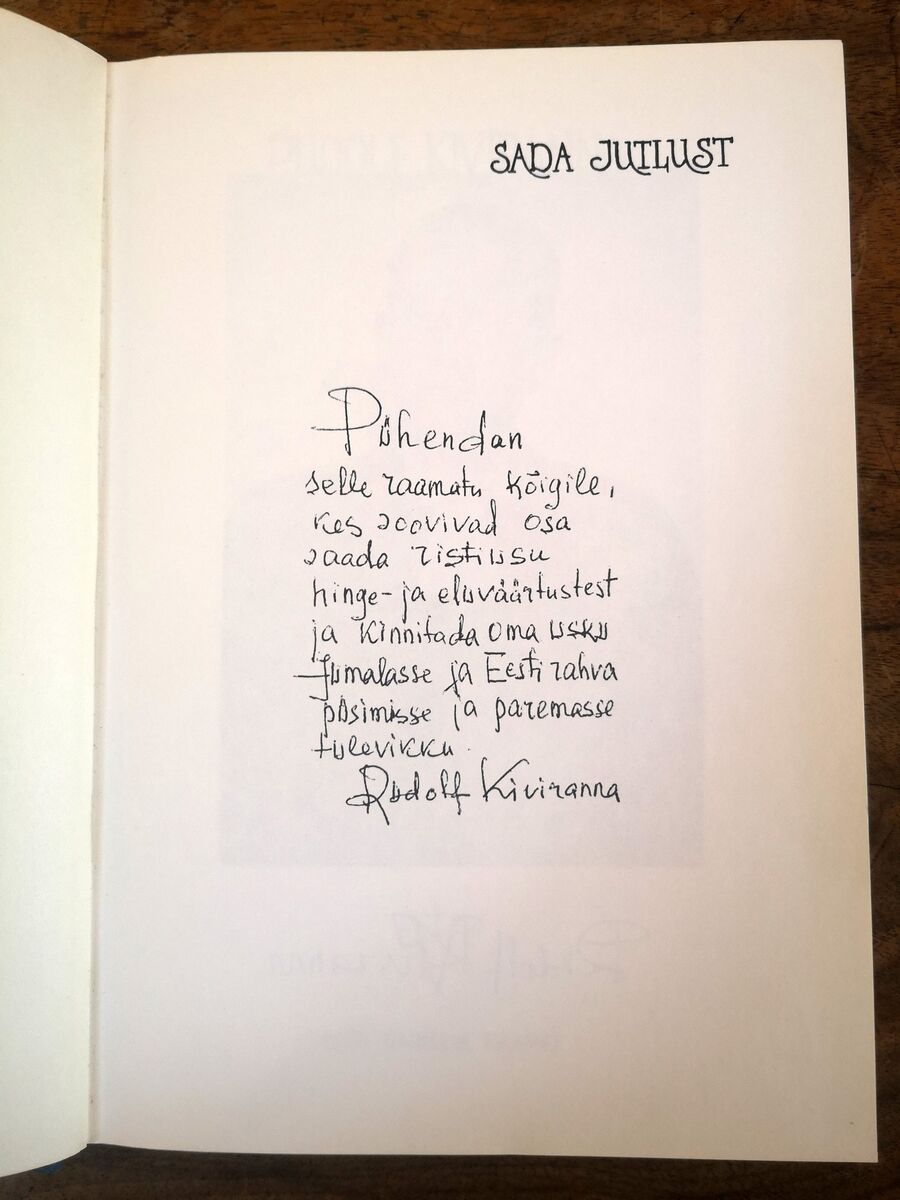 SADA JUTLUST
Pühendan
selle raamatu kõigile,
kes soovivad osa
saada ristiusu
hinge- ja eluväärtustest
ja kinnitada oma usku
Jumalasse ja Eesti rahva
püsimisse ja paremasse
tulevikku.
Rudolf Kiviranna